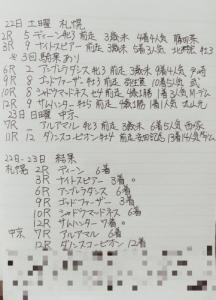 22日 土曜 札幌
2R 5 ディーン 牡3 前走 3歳未 4着4人気
3R 9 ナイトスピアー 前走 3歳未 5着3人気 牡3
※3回騎乗あり
6R 2 アングレダンス 牝3 前走 3歳未 2着4人気
9R 8 ゴッドファーザー 牡3 前走 10着5人気 武豊
10R 8 シャドウマドネス セン4 前走 1勝 1着3人気 M.デム
12R 9 サムハンター 牡5 前走 1勝 1着1人気
23日 日曜 中京
7R _ アルアマル 牝3 前走 3歳未 6着5人気 西塚
12R _ ダンスコーピオン 牡4 前走 1着1人気
22日-23日 結果
札幌 2R ディーン 6着
3R ナイトスピアー 3着。
6R アングレダンス 6着
9R ゴッドファーザー 3着
10R シャドウマドネス 6着
12R サムハンター 7着。
中京 7R アルアマル 6着
12R ダンスコーピオン 12着